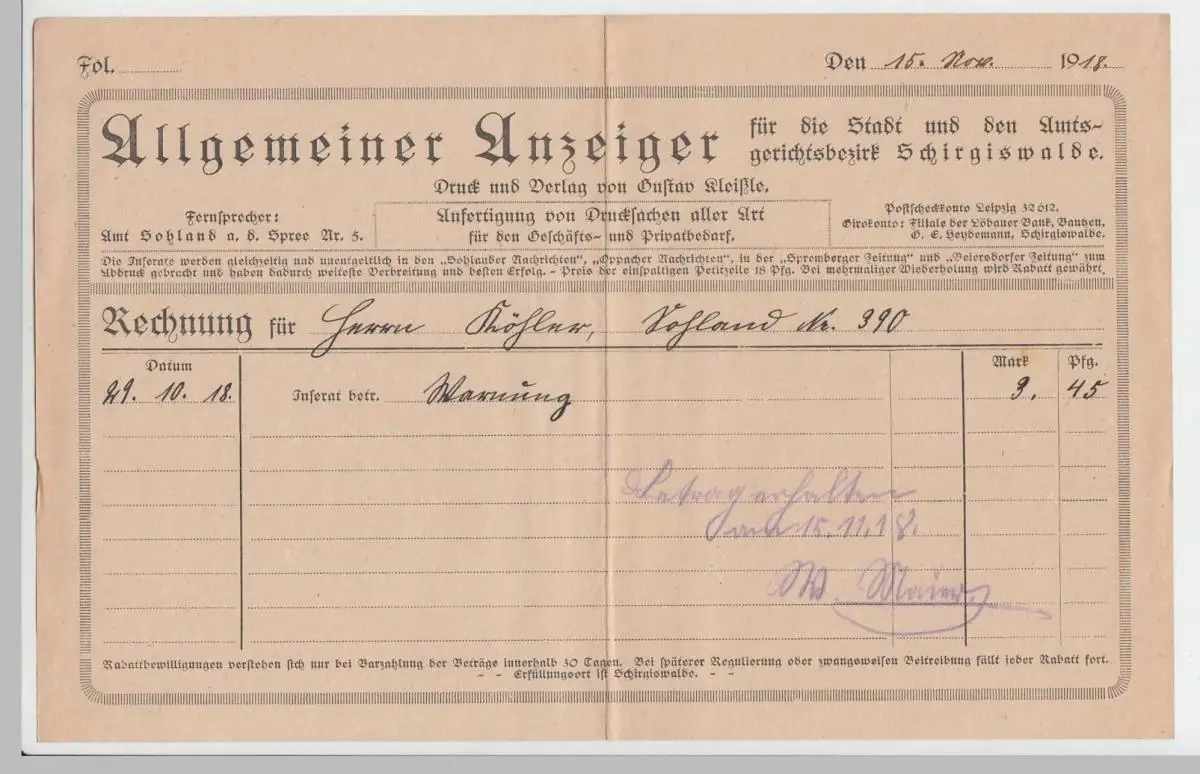 Fol.
Den 15. Nov. 1918.
Allgemeiner Anzeiger
für die Stadt und den Amts-
gerichtsbezirk Schirgiswalde.
Druck und Verlag von Gustav Kleißle.
Fernsprecher:
Amt Sohland a. d. Spree Nr. 5.
Anfertigung von Drucksachen aller Art
für den Geschäfts- und Privatbedarf.
Postscheckkonto Leipzig 32612.
Girokonto: Filiale der Löbauer Bank, Bautzen,
G. E. Heydemann, Schirgiswalde.
Die Inserate werden gleichzeitig und unentgeltlich in den „Sohlander Nachrichten“, „Oppacher Nachrichten“, in der „Spremberger Zeitung“ und „Beiersdorfer Zeitung“ zum
Abdruck gebracht und haben dadurch weiteste Verbreitung und besten Erfolg. - Preis der einspaltigen Petitzeile 18 Pfg. Bei mehrmaliger Wiederholung wird Rabatt gewährt.
Rechnung für Herrn Köhler, Sohland Nr. 390
Datum Mark Pfg.
29. 10. 18. Inserat betr. Warnung 3. 45
Betrag erhalten
am 15.11.18.
W. Maier
Rabattbewilligungen verstehen sich nur bei Barzahlung der Beträge innerhalb 30 Tagen. Bei späterer Regulierung oder zwangsweisen Beitreibung fällt jeder Rabatt fort.
- - Erfüllungsort ist Schirgiswalde. - -